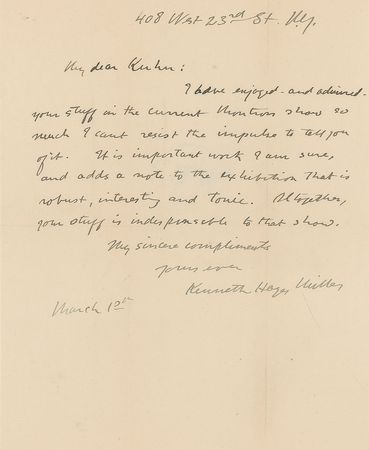 408 West 23rd St. N.Y.
My dear Kuhn:
I have enjoyed - and admired -
your stuff in the current Montross show so
much I cant resist the impulse to tell you
of it. It is important work I am sure,
and adds a note to the exhibition that is
robust, interesting and tonic. Altogether,
your stuff is indispensable to that show.
My sincere compliments
yours ever
Kenneth Hayes Miller
March